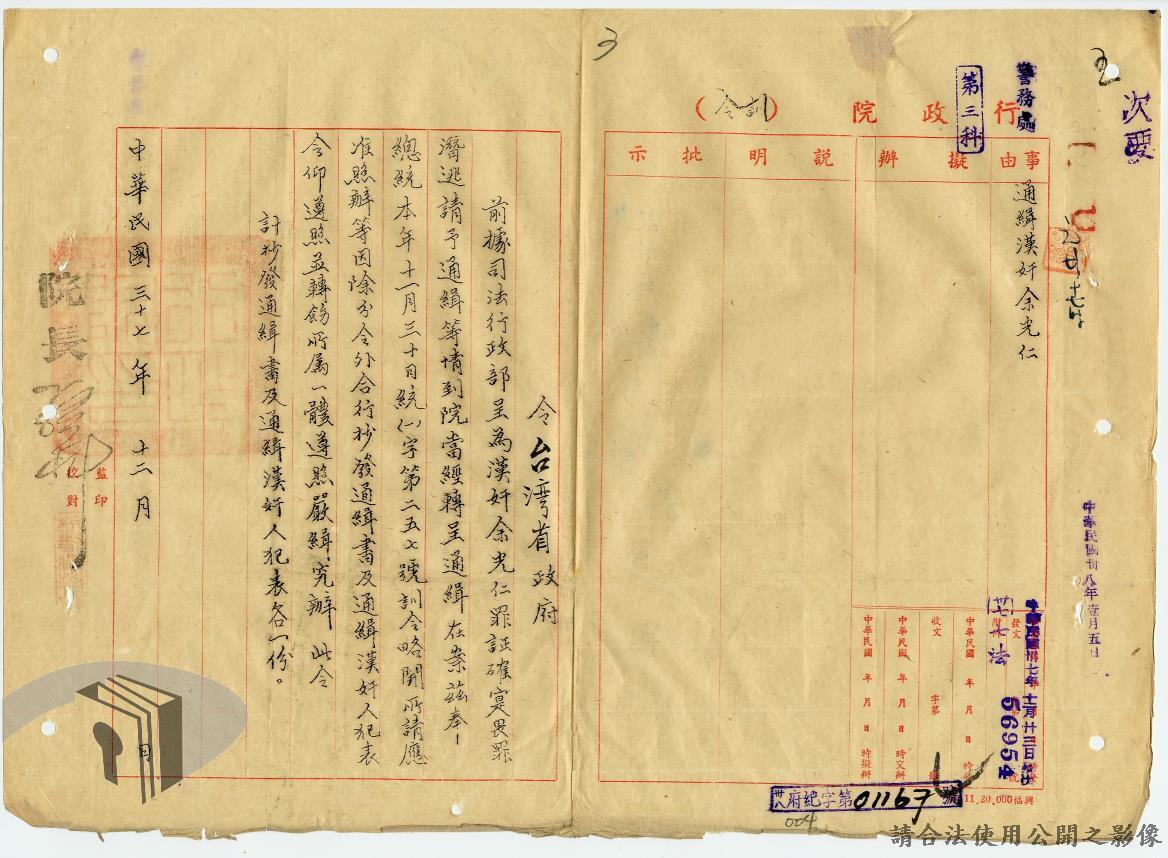 次要
警務處
第三科
行政院（訓令）
事由
擬辦
說明
批示
通緝漢奸余光仁
中華民國卅八年壹月五日
中華民國卅七年十二月廿三日
發文
(卅七)七法
56954
中華民國 年 月 日 時
收文 字第 號
中華民國 年 月 日 時交辦
中華民國 年 月 日 時擬辦
11,20,000福興
卅八府紀字第01167號
004
3
令台湾省政府
前據司法行政部呈為漢奸余光仁罪証確寔畏罪
潛逃請予通緝等情到院當經轉呈通緝在案茲奉
總統本年十一月三十日統㈠字第二五七號訓令略開所請應
准照辦等因除分令外合行抄發通緝書及通緝漢奸人犯表
令仰遵照並轉飭所属一體遵照嚴緝究辦此令
計抄發通緝書及通緝漢奸人犯表各一份。
中華民國三十七年十二月 日
院長孫
監印
校對
請合法使用公開之影像